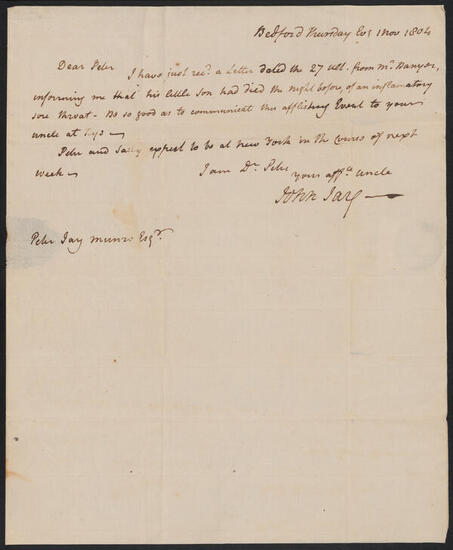 Bedford Thursday Evg 1 Nov 1804
Dear Peter
I have just recd. a Letter dated the 27 ult. from Mr. Banyer,
informing me that his little Son had died the night before, of an inflamatory
sore throat - Be so good as to communicate this afflicting Event to your
uncle at Rye -
Peter and Sally expect to be at New York in the course of next
week -
I am Dr. Peter
your affte. uncle
John Jay -
Peter Jay Munro Esqr.